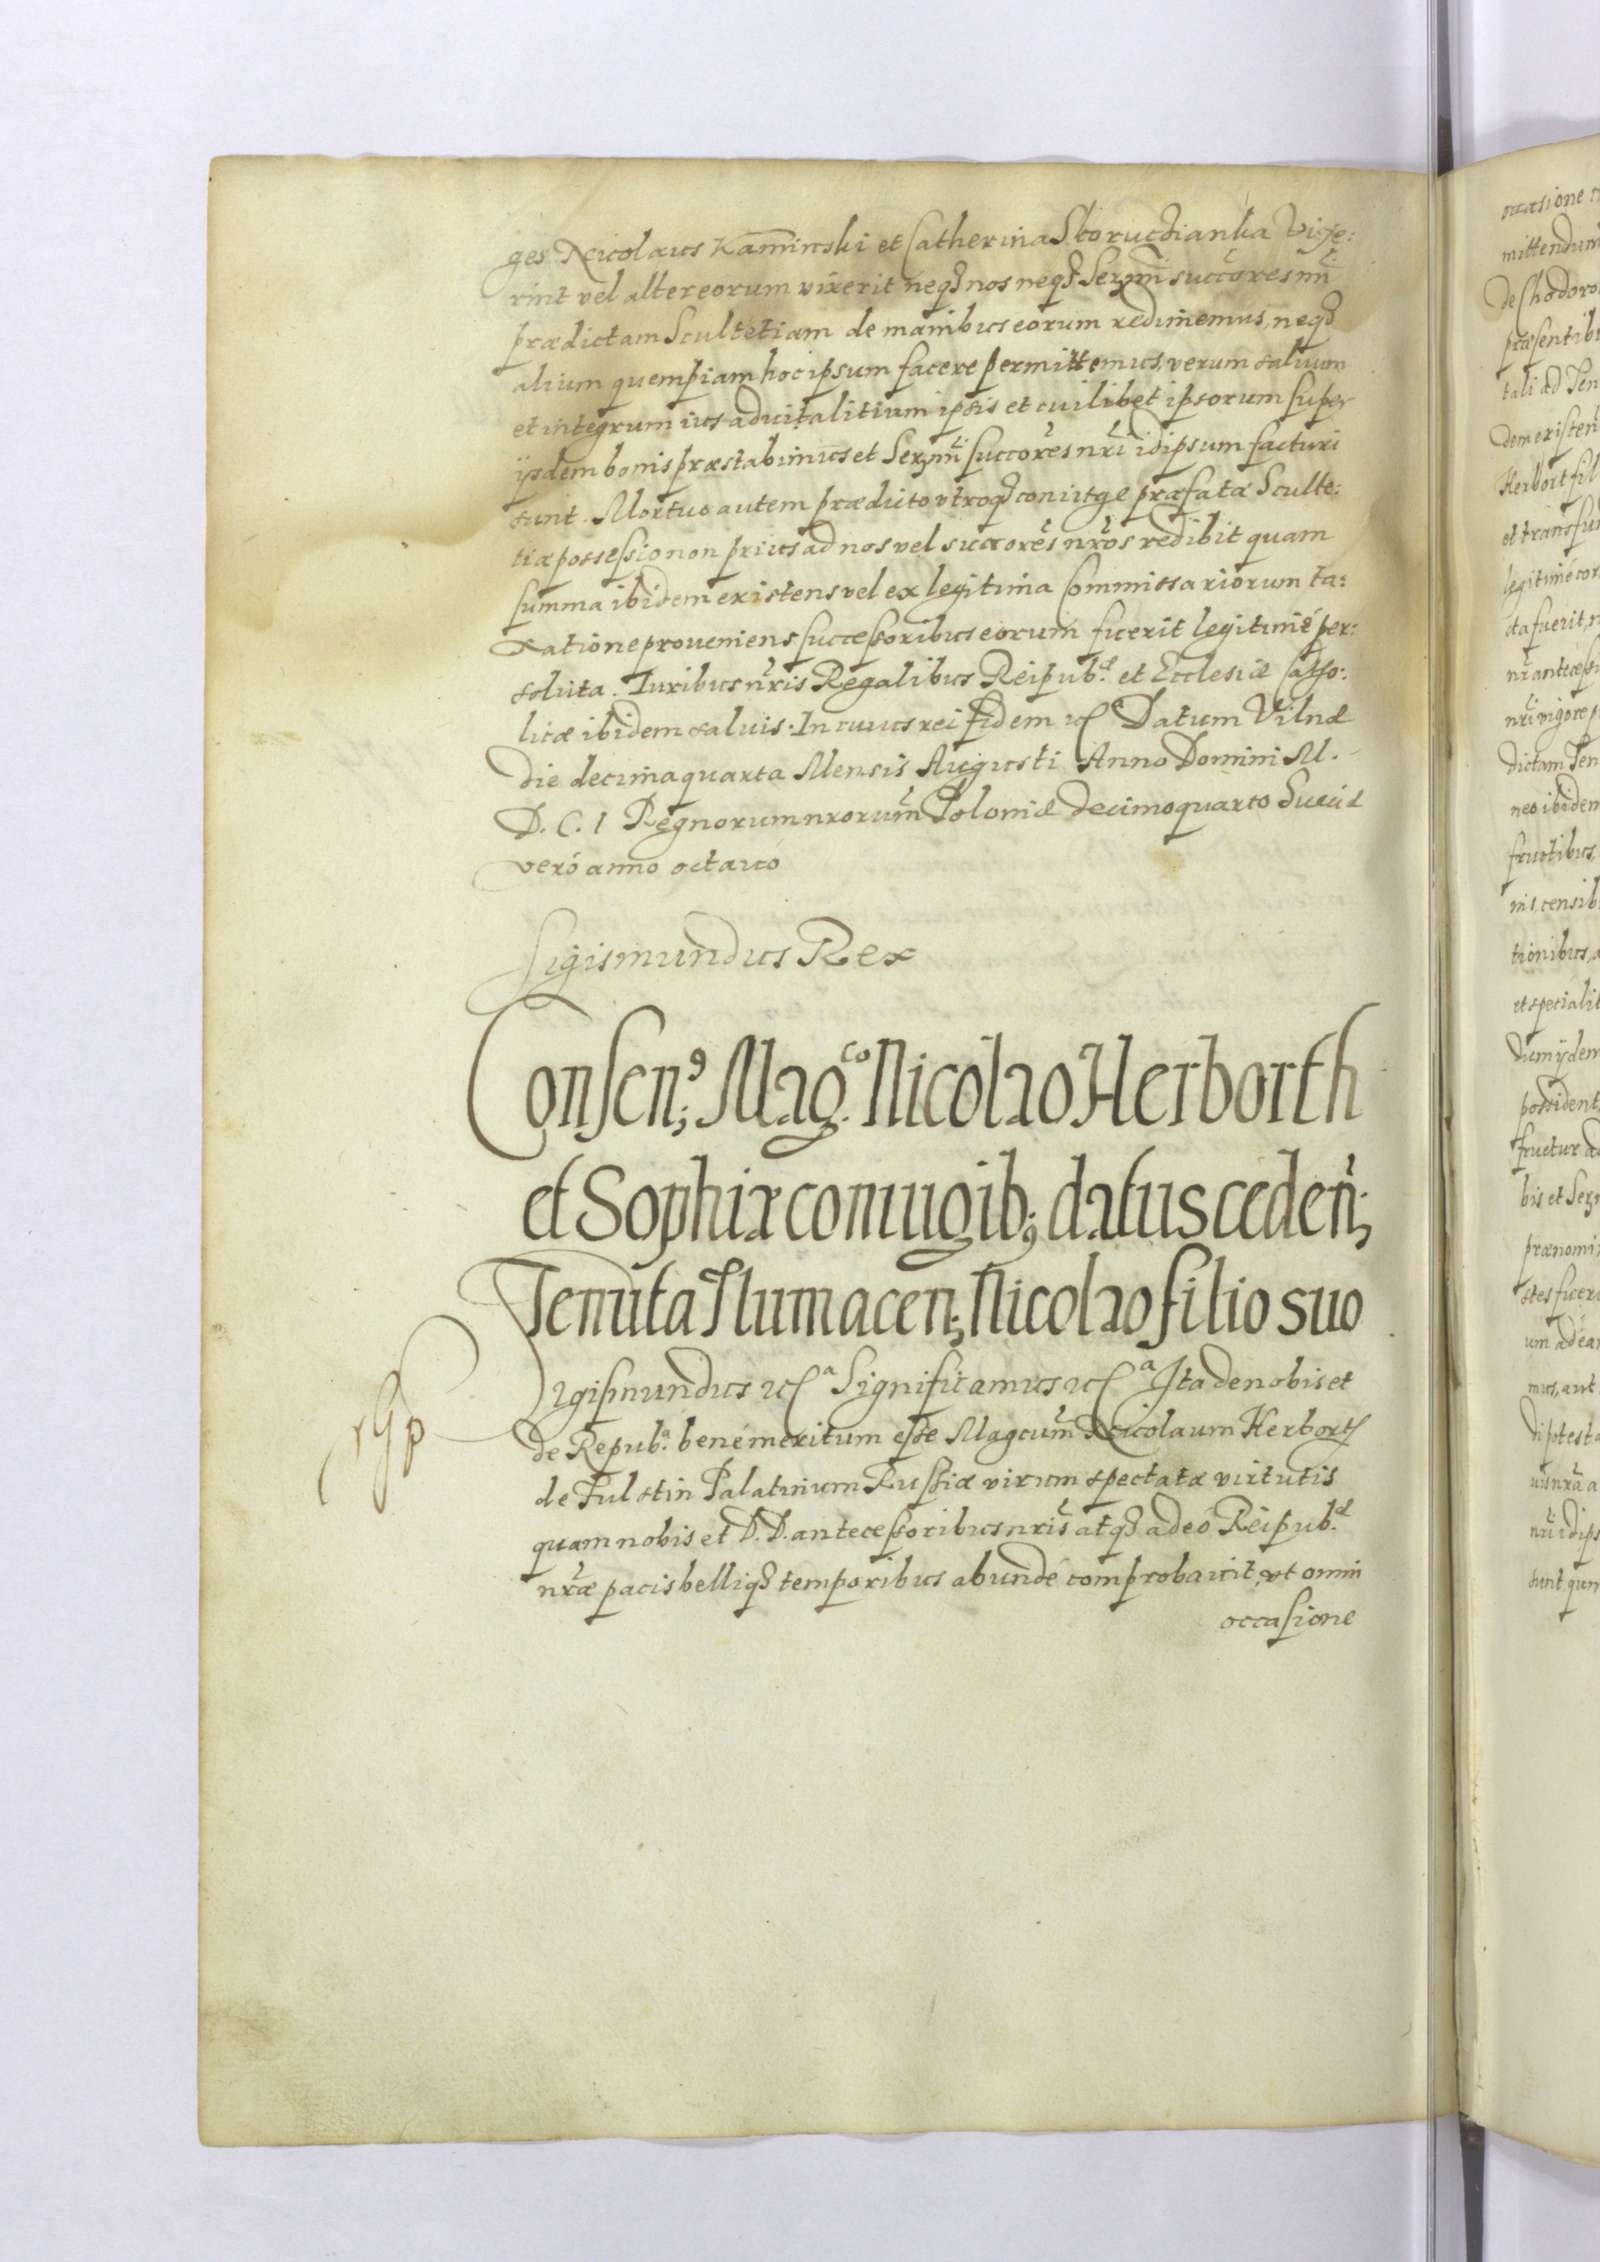 ges Nicolaus Kaminski et Catherina Storuchianka vixe:
rint vel alter eorum vixerit neq3 nos neq3 Serẽmi succores nr̃i
prædictam Scultetiam de manibus eorum redimemus, neq3
alium quempiam hoc ipsum facere permittemus, verum salvum
et integrum ius advitalitium ipsis et cuilibet ipsorum super
ijsdem bonis præstabimus et Serẽmi succores nr̃i idipsum facturi
sunt. Mortuo autem prædicto vtroq3 coniuge præfatæ Sculte:
tiæ possessio non prius ad nos vel succores nr̃os redibit quam
summa ibidem existens vel ex legitima Commissariorum ta:
xatione proueniens successoribus eorum fuerit legitimè per:
soluta. Iuribus nr̃is Regalibus Reipub.æ et Ecclesiæ Catho:
licæ ibidem saluis. In cuius rei fidem etc Datum Vilnæ
die decima quarta Mensis Augusti Anno Domini M.
D. C. I Regnorum nrorum̃ Poloniæ decimoquarto Sueciæ
verò anno octauo
Sigismundus Rex
Consen; Mag.co Nicolao Herborth
et Sophiæ coniugib; datus ceden;
Tenuta Tlumacen; Nicolao filio suo
Sigismundus etc a Significamus etc a Ita de nobis et
de Repub.a benè meritum esse Magcum̃ Nicolaum Herbort
de Fulstin Palatinum Russiæ virum spectatæ virtutis
quam nobis et D. D. antecessoribus nr̃is atq3 adeò Reipub.æ
nr̃æ pacis belliq3 temporibus abundè comprobauit, vt omni
occasione
occasione
mittendum
de Chodoro
præsentib
tali ad Ten
dem existen
Herbort fil
et transfu
legitimè cor
ta fuerit, n
nr̃i vigore p
dictam Ten
neo ibidem
fructibus,
nis, censib
tionibus, a
et specialit
dum ijdem
possident
fruetur ad
bis et Serẽ
prænomi
um ad ea
mus, aut
nr̃i idips
sunt, quem